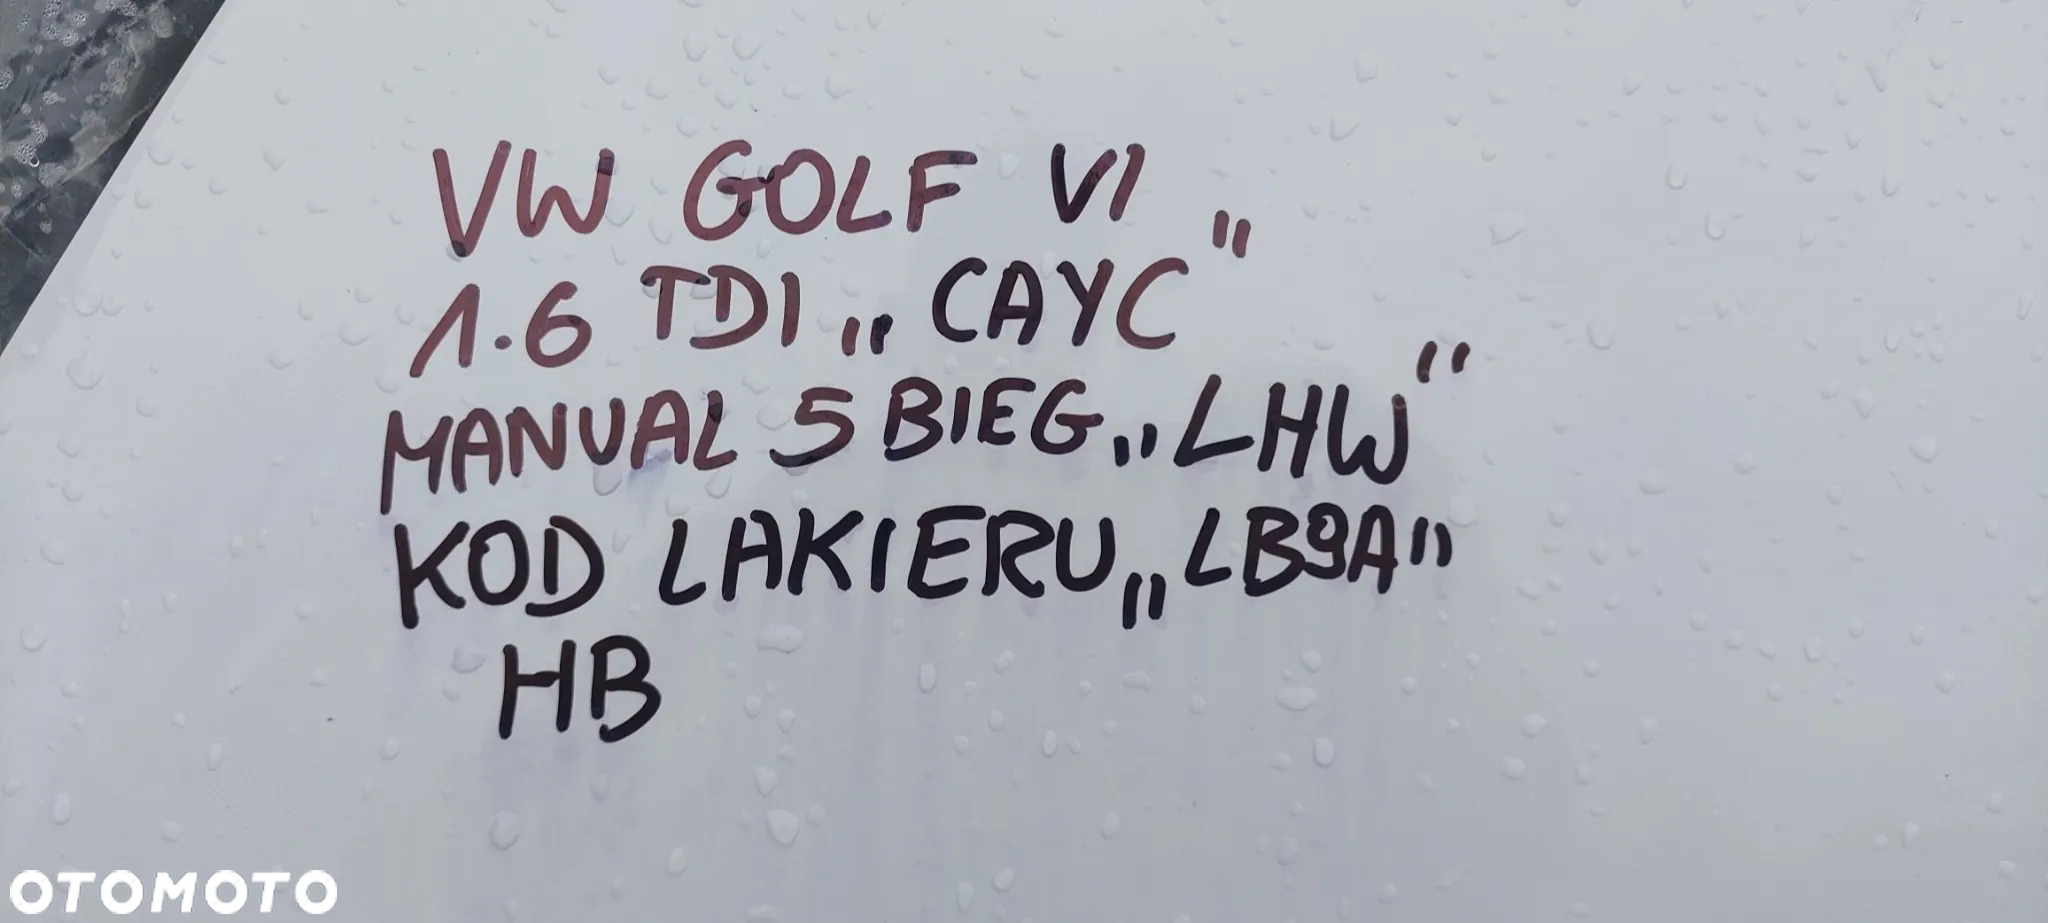 VW GOLF VI
1.6 TDI „CAYC"
MANUAL 5 BIEG „LHW"
KOD LAKIERU „LB9A"
HB
OTOMOTO